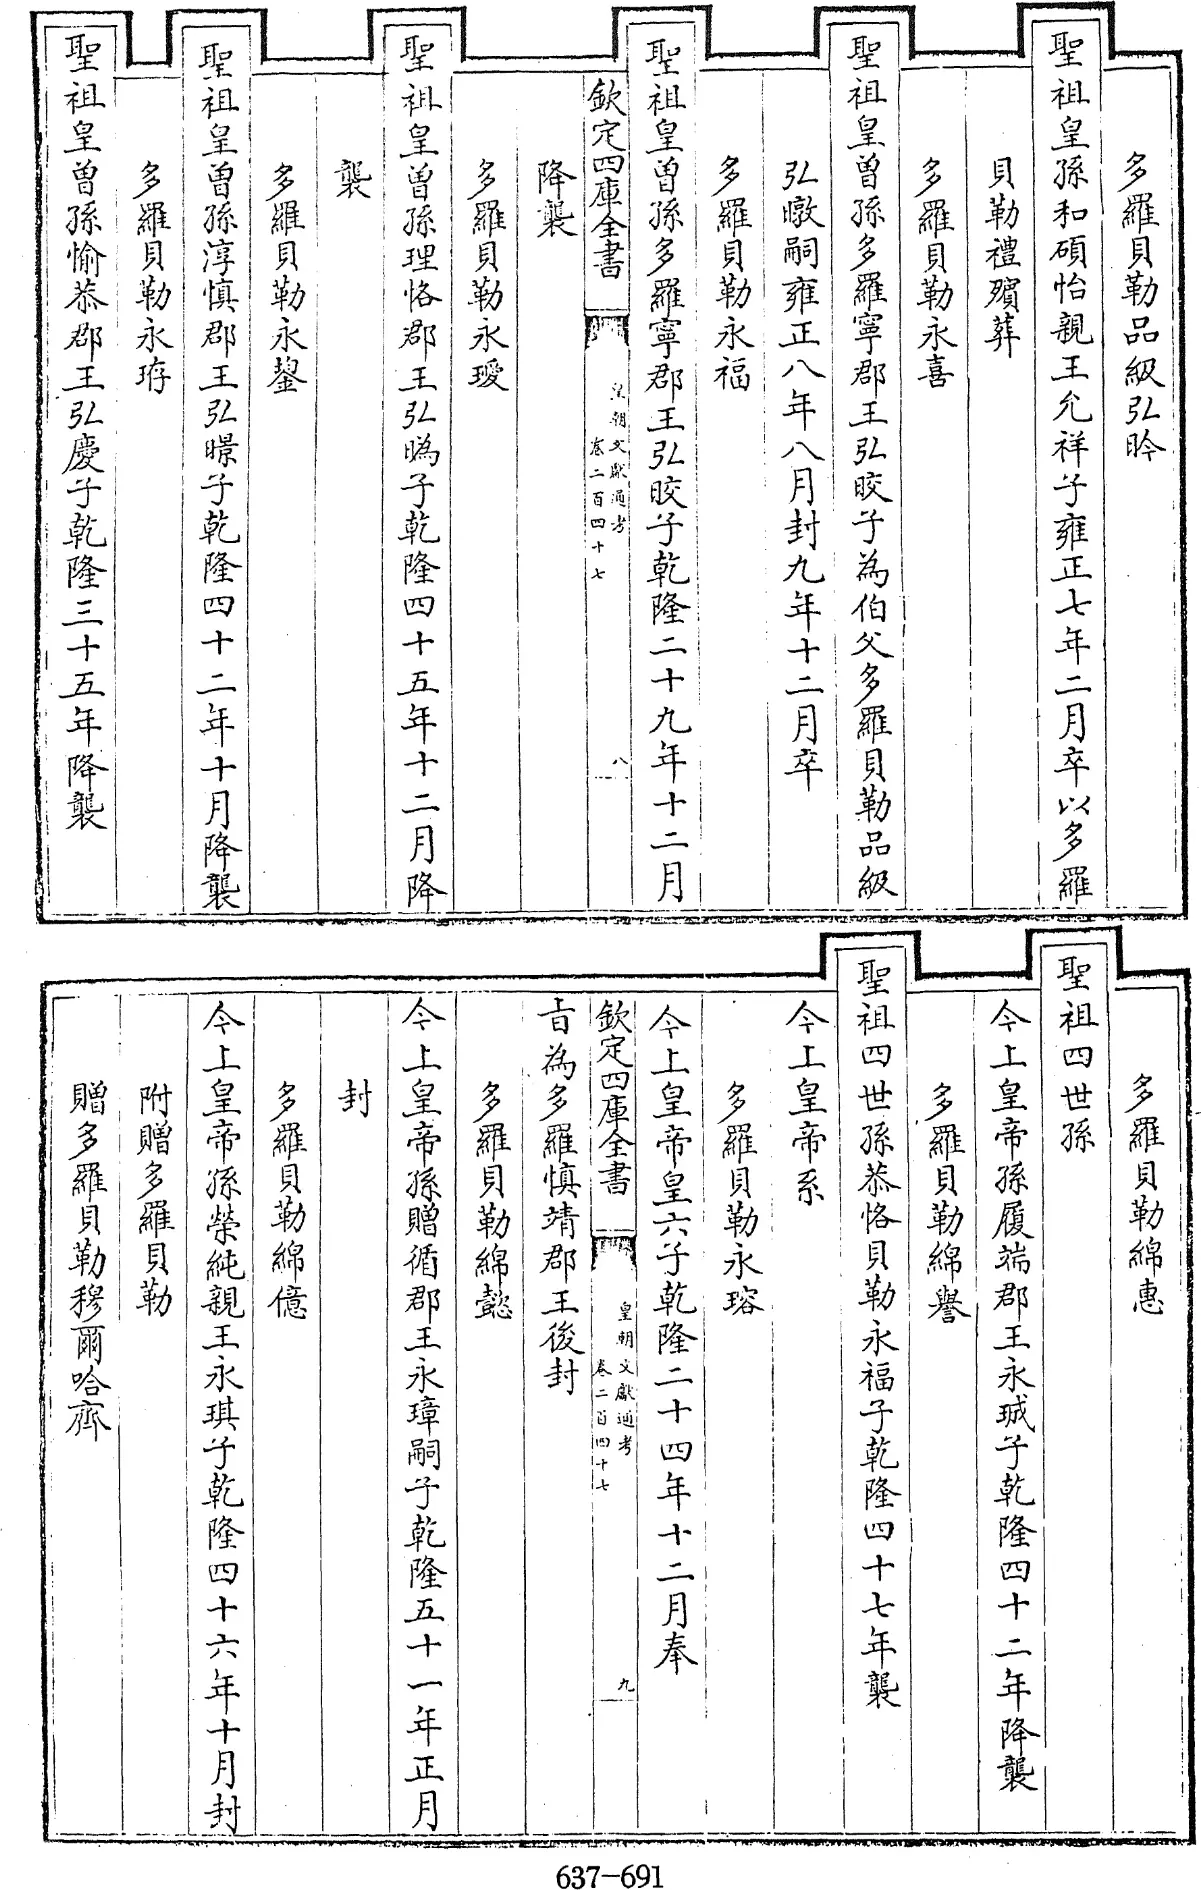 多羅貝勒品級弘昑
聖祖皇孫和碩怡親王允祥子雍正七年二月卒以多羅
貝勒禮殯葬
多羅貝勒永喜
聖祖皇曾孫多羅寧郡王弘晈子為伯父多羅貝勒品級
弘暾嗣雍正八年八月封九年十二月卒
多羅貝勒永福
聖祖皇曾孫多羅寧郡王弘晈子乾隆二十九年十二月
欽定四庫全書
皇朝文獻通考
卷二百四十七
八
降襲
多羅貝勒永璦
聖祖皇曾孫理恪郡王弘㬙子乾隆四十五年十二月降
襲
多羅貝勒永鋆
聖祖皇曾孫淳慎郡王弘暻子乾隆四十二年十月降襲
多羅貝勒永珔
聖祖皇曾孫愉恭郡王弘慶子乾隆三十五年降襲
多羅貝勒綿惠
聖祖四世孫
今上皇帝孫履端郡王永珹子乾隆四十二年降襲
多羅貝勒綿譽
聖祖四世孫恭恪貝勒永福子乾隆四十七年襲
今上皇帝系
多羅貝勒永瑢
今上皇帝皇六子乾隆二十四年十二月奉
欽定四庫全書
皇朝文獻通考
卷二百四十七
九
旨為多羅慎靖郡王後封
多羅貝勒綿懿
今上皇帝孫贈循郡王永璋嗣子乾隆五十一年正月
封
多羅貝勒綿億
今上皇帝孫榮純親王永琪子乾隆四十六年十月封
附贈多羅貝勒
贈多羅貝勒穆爾哈齊
637-691